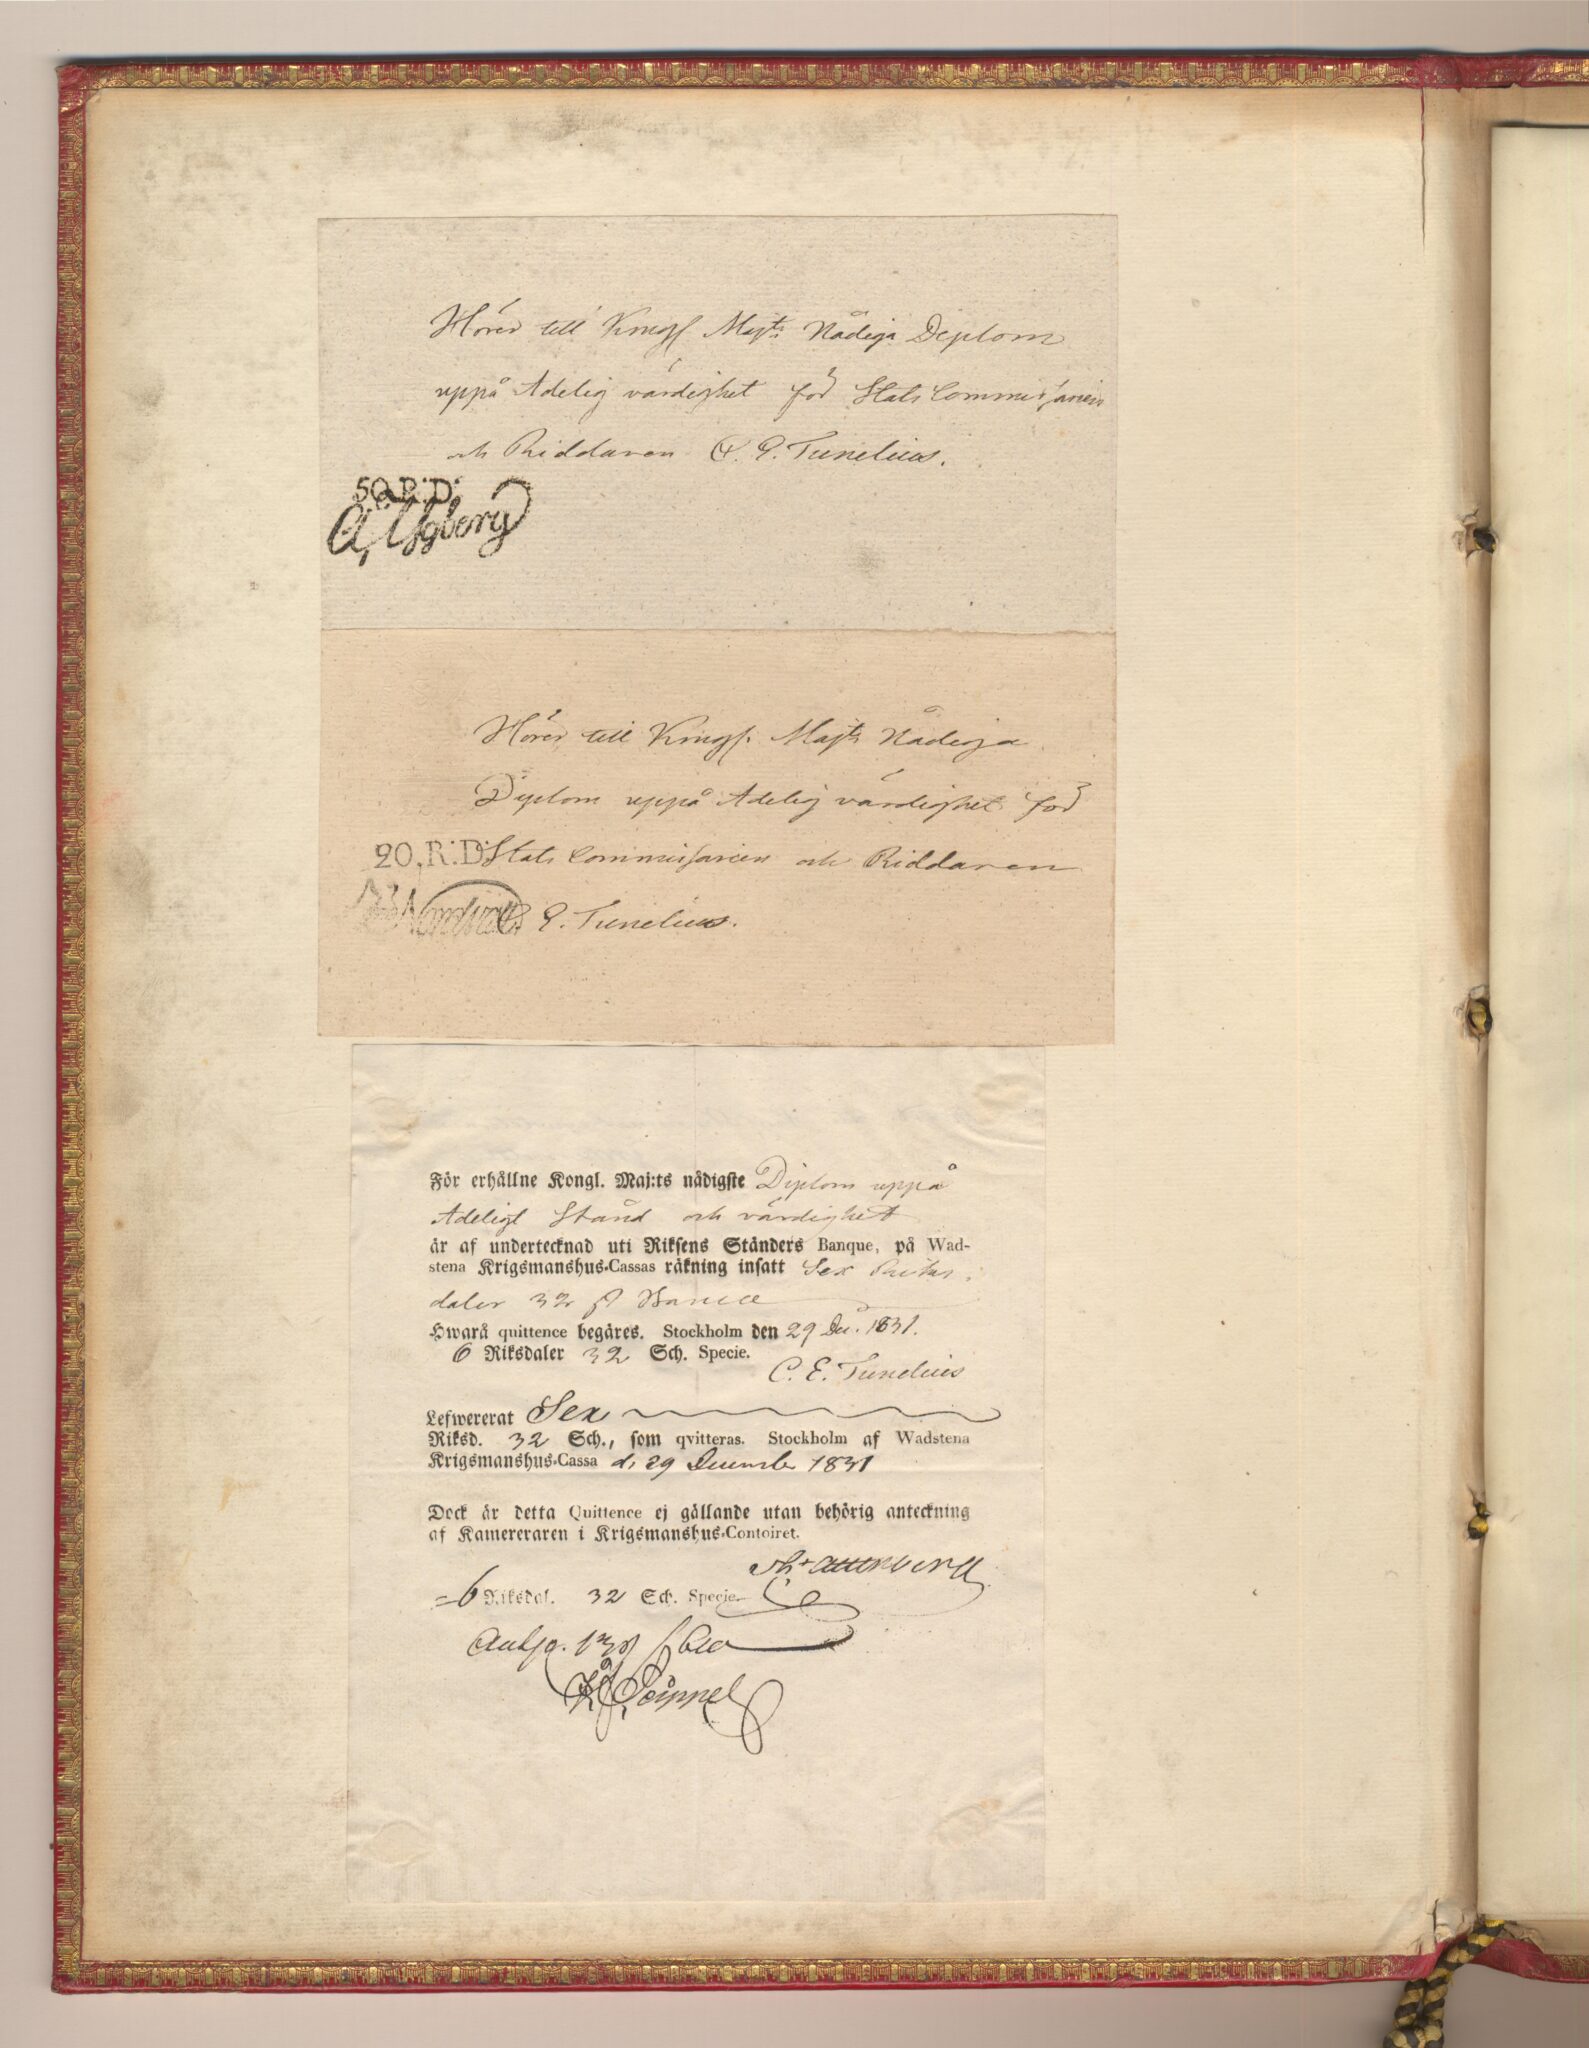 Hörer till Kongl Majts Nådiga Diplom
uppå Adelig värdighet för Stats Commissarien
och Riddaren C. E. Tunelius.
50.R:D:
Hörer till Kongl. Majts Nådiga
Diplom uppå Adelig värdighet för
20.R:D: Stats Commissarien och Riddaren
C. E. Tunelius.
För erhållne Kongl. Maj:ts nådigste Diplom uppå
Adeligt Stånd och värdighet
är af undertecknad uti Riksens Ständers Banque, på Wad-
stena Krigsmanshus-Cassas räkning insatt Sex Riks
daler 32 s Banco
Hwarå quittence begäres. Stockholm den 29 Dec. 1831.
6 Riksdaler 32 Sch. Specie.
C. E. Tunelius
Lefwererat Sex
Riksd. 32 Sch., som qvitteras. Stockholm af Wadstena
Krigsmanshus-Cassa d. 29 December 1831
Dock är detta Quittence ej gällande utan behörig anteckning
af Kamereraren i Krigsmanshus-Contoiret.
=6 Riksdal. 32 Sch. Specie.